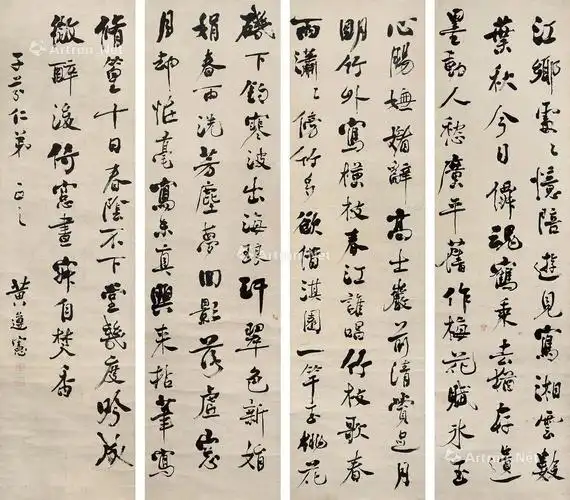 江鄉處處憶陪遊見寫湘雲數
葉秋今日僊魂鶴乘去猶存遺
墨動人愁廣平舊作梅花賦冰玉
心腸嫵媚辭高士巖前清賞過月
明竹外寫橫枝春江誰唱竹枝歌春
雨瀟〻傍竹多欲借淇園一竿玉桃花
磯下釣寒波出海瓊玕翠色新娟
娟春雨洗芳塵夢回影落虛窗
月却怪毫寫未真興來拈筆寫
脩篁十日春陰不下堂幾度吟成
微醉後倚窗晝寐自焚香
子芬仁弟 正之
黃遵憲
Artron.Net